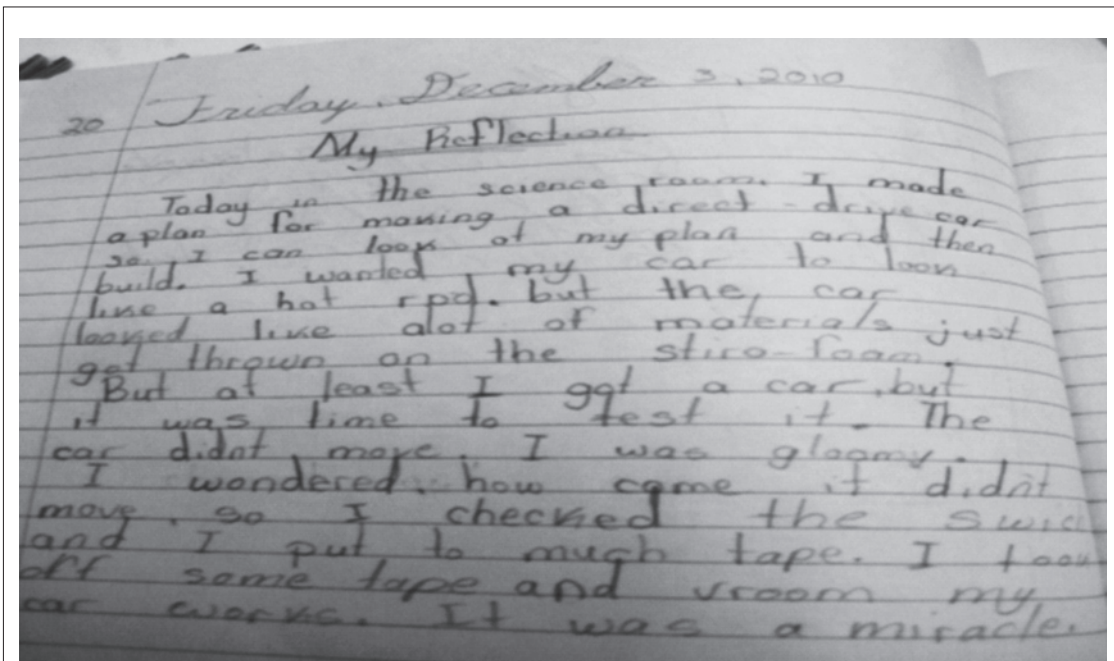 20 Friday, December 3, 2010
My Reflection
Today in the science room. I made
a plan for making a direct-drive car
so I can look at my plan and then
build. I wanted my car to look
like a hot rod. but the car
looked like alot of materials just
got thrown on the stiro-foam.
But at least I got a car, but
it was time to test it. The
car didnt move. I was gloomy.
I wondered how come it didn't
move, so I checked the
and I put to much tape. I took
off some tape and vroom my
car works. It was a miracle.